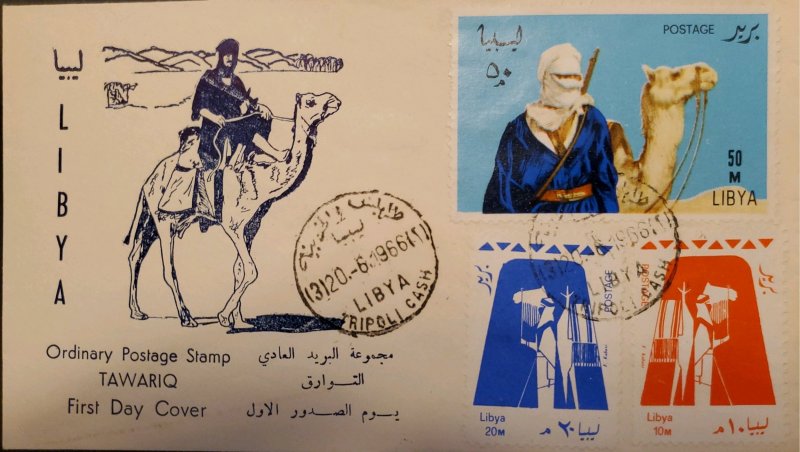 ليبيا
LIBYA
Ordinary Postage Stamp
TAWARIQ
First Day Cover
مجموعة البريد العادي
التوارق
يوم الصدور الاول
طرابلس
ليبيا
(3)20.-6.1966(2)
LIBYA
TRIPOLI CASH
ليبيا
٥٠ م
POSTAGE بريد
50
M
LIBYA
(3)20.-6.1966(2)
LIBYA
TRIPOLI CASH
بريد
POSTAGE
Libya ليبيا
20M ٢٠ م
بريد
POSTAGE
Libya ليبيا
10M ١٠ م